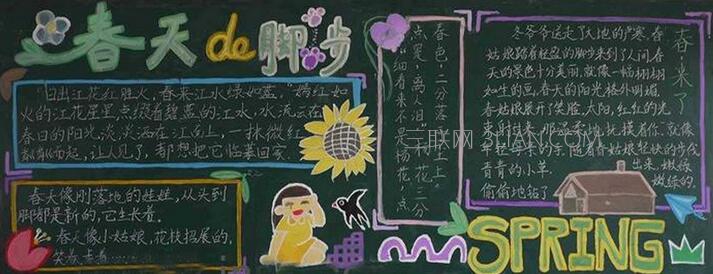 春天de脚步
"日出江花红胜火,春来江水绿如蓝。"嫣红如
火的江花星星点缀着碧蓝的江水,水流云在
春日的阳光淡淡洒在江面上,一抹微红
粼粼而起,让人见了,都想把它临摹回家。
春天像刚落地的娃娃,从头到
脚都是新的,它生长着。
春天像小姑娘,花枝招展的,
笑着,走着……
春色,二分落
尘土上
点是,离人泪。
杨花,点
细看来不是
春来了
冬爷爷送走了大地的严寒,春
姑娘踏着轻盈的脚步来到了人间,春
天的景色十分美丽,就像一幅栩栩
如生的画,春天的阳光格外明媚,
春姑娘展开了笑脸,太阳,红红的光
抚摸着你,就像
随着春姑娘轻快的步伐
青青的小草
出来,嫩嫩
偷偷地钻了
绿绿的。
三联网
SPRING